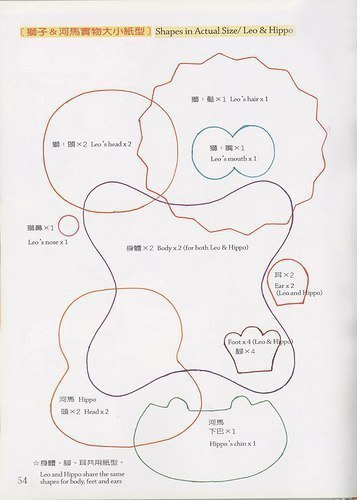 〔獅子＆河馬實物大小紙型〕Shapes in Actual Size/ Leo & Hippo
獅：髮×1 Leo's hair x 1
獅：頭×2 Leo's head x 2
獅：嘴×1
Leo's mouth x 1
獅鼻×1
Leo's nose x 1
身體×2 Body x 2 (for both Leo & Hippo)
耳×2
Ear x 2
(Leo and Hippo)
Foot x 4 (Leo & Hippo)
腳×4
河馬 Hippo
頭×2 Head x 2
河馬
下巴×1
Hippo's chin x 1
☆身體、腳、耳共用紙型。
Leo and Hippo share the same
shapes for body, feet and ears
54